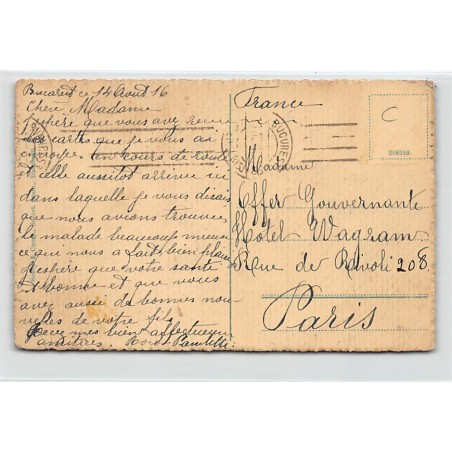 Bucarest ce 14 Août 16
Chère Madame
J'espère que vous avez
les cartes que je vous ai
en cours de route
celle aussitôt arrivée ici
dans laquelle je vous disais
que nous avions trouvé
le malade beaucoup mieux
ce qui nous a fait bien plaisir
J'espère que votre santé
bonne et que vous
avez aussi de bonnes nou-
velles de votre fils
mes bien affectueuses
amitiés.
France
Madame
Effer Gouvernante
Hôtel Wagram
Rue de Rivoli 208
Paris
C